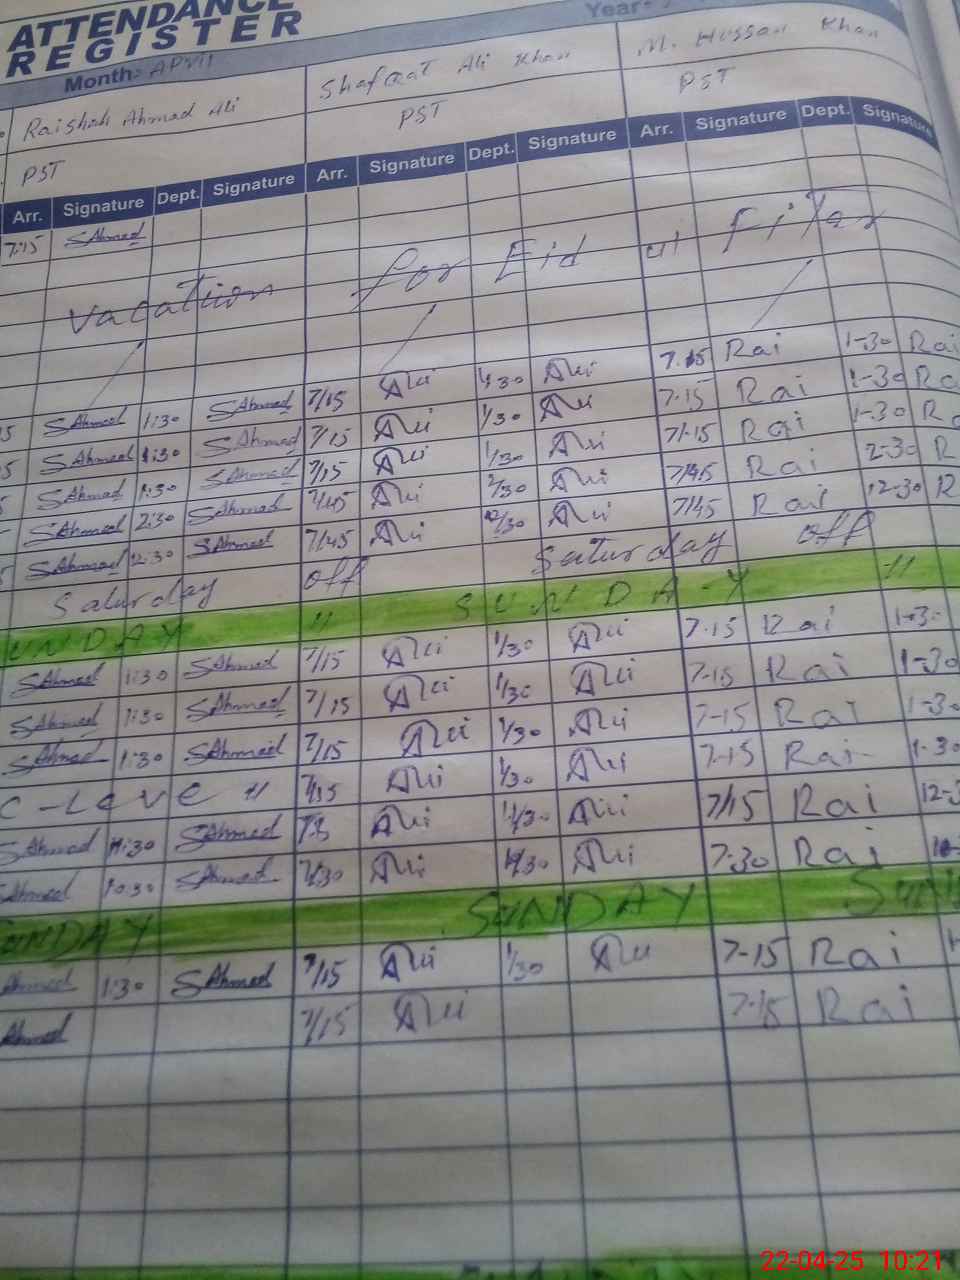 ATTENDANCE
REGISTER
Year:
Month: April
Raishah Ahmad Ali Shafqat Ali Khan M. Hussan Khan
PST PST PST
Arr. Signature Dept. Signature Arr. Signature Dept. Signature Arr. Signature Dept. Signature
7:15 SAhmed
Vacation for Eid ul Fitar
SAhmed 1:30 SAhmed 7/15 Ali 1/30 Ali 7.15 Rai 1-30 Rai
SAhmed 1:30 SAhmed 7/15 Ali 1/30 Ali 7-15 Rai 1-30 Ra
SAhmed 1:30 SAhmed 7/15 Ali 1/30 Ali 7/-15 Rai 1-30 R
SAhmed 2:30 SAhmed 7/45 Ali 2/30 Ali 7/45 Rai 2-30 R
SAhmed 12:30 SAhmed 7/45 Ali 12/30 Ali 7/45 Rai 12-30 R
Saturday off Saturday off
UNDAY " SUNDAY "
SAhmed 1:30 SAhmed 7/15 Ali 1/30 Ali 7-15 Rai 1-30
SAhmed 1:30 SAhmed 7/15 Ali 1/30 Ali 7-15 Rai 1-30
SAhmed 1:30 SAhmed 7/15 Ali 1/30 Ali 7-15 Rai 1-30
C-Leve " 7/15 Ali 1/30 Ali 7-15 Rai 1-30
SAhmed 11:30 SAhmed Ali Ali 7/15 Rai 12-3
Ahmed 10:30 SAhmed 7/30 Ali Ali 7:30 Rai
UNDAY SUNDAY SUN
Ahmed 1:30 SAhmed 7/15 Ali 1/30 Ali 7-15 Rai
Ahmed 7/15 Ali 7-15 Rai
22-04-25 10:21